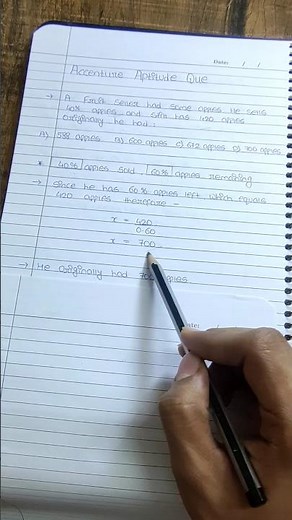 Date: / /
Accenture Aptitude Que
→ A Fruit seller had some apples. He sells
40% apples and still has 420 apples
originally he had:
A) 588 apples B) 600 apples c) 672 apples D) 700 apples
* 40% apples sold, 60% apples remaining
→ Since he has 60% apples left which equals
420 apples therefore -
x = 420
0.60
x = 700
→ He originally had 700 apples.